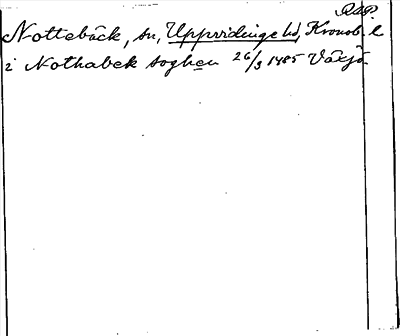 RAP.
Nottebäck, sn, Uppvidinge hd, Kronob. l
i Nothabek soghen 26/3 1485 Växjö